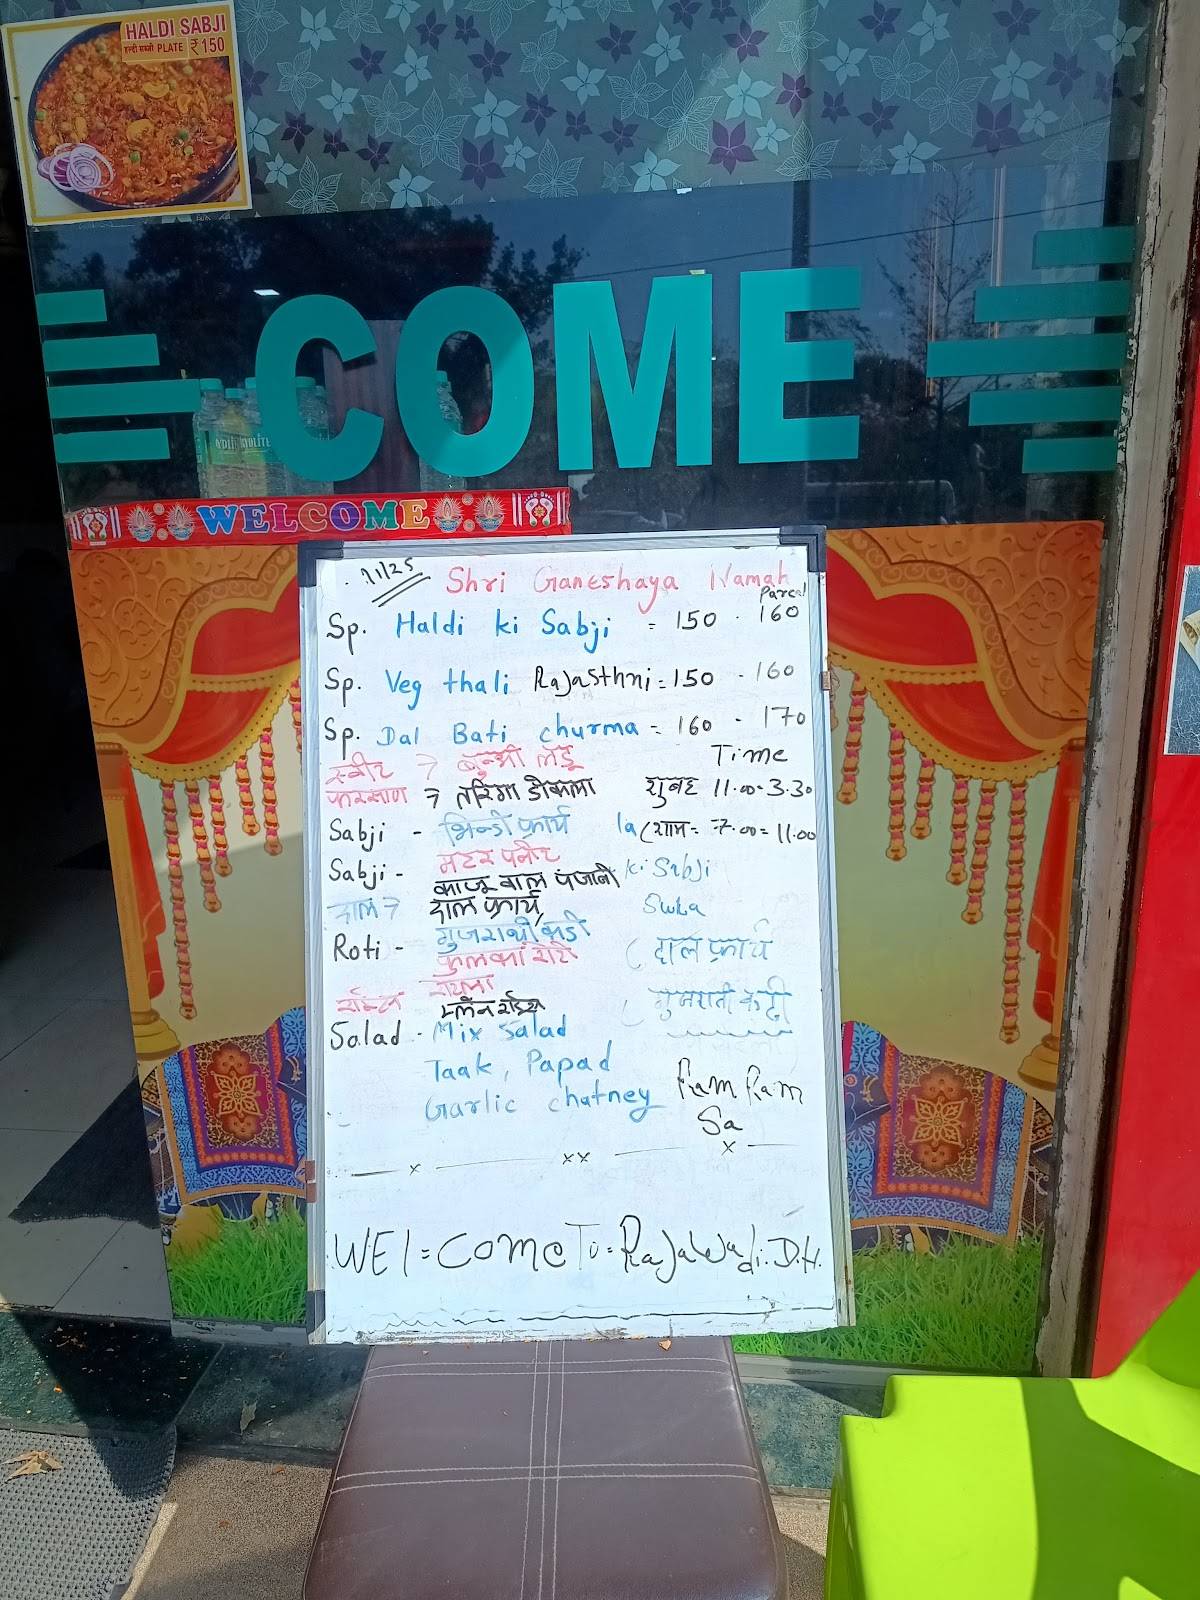 HALDI SABJI
हल्दी सब्जी PLATE ₹150
COME
WELCOME
Shri Ganeshaya Namah
Parcel
Sp. Haldi ki Sabji = 150 - 160
Sp. Veg thali RajaSthni = 150 - 160
Sp. Dal Bati churma = 160 - 170
स्वीट →
Time
फरसाण →
शुबह 11.00-3.30
Sabji - भिन्डी फ्राय
शाम = 7.00 = 11.00
Sabji - मटर पनीर
ki Sabji
काजू वाल पंजाबी
दाल → दाल फ्राय
गुजराथी कडी
Roti - फुलका रोटी
( दाल फ्राय
( गुजराती कढ़ी
Salad - Mix Salad
Taak, Papad
Garlic chatney
Ram Ram
Sa
WEl = COme To = RaJaWadi. D.H.